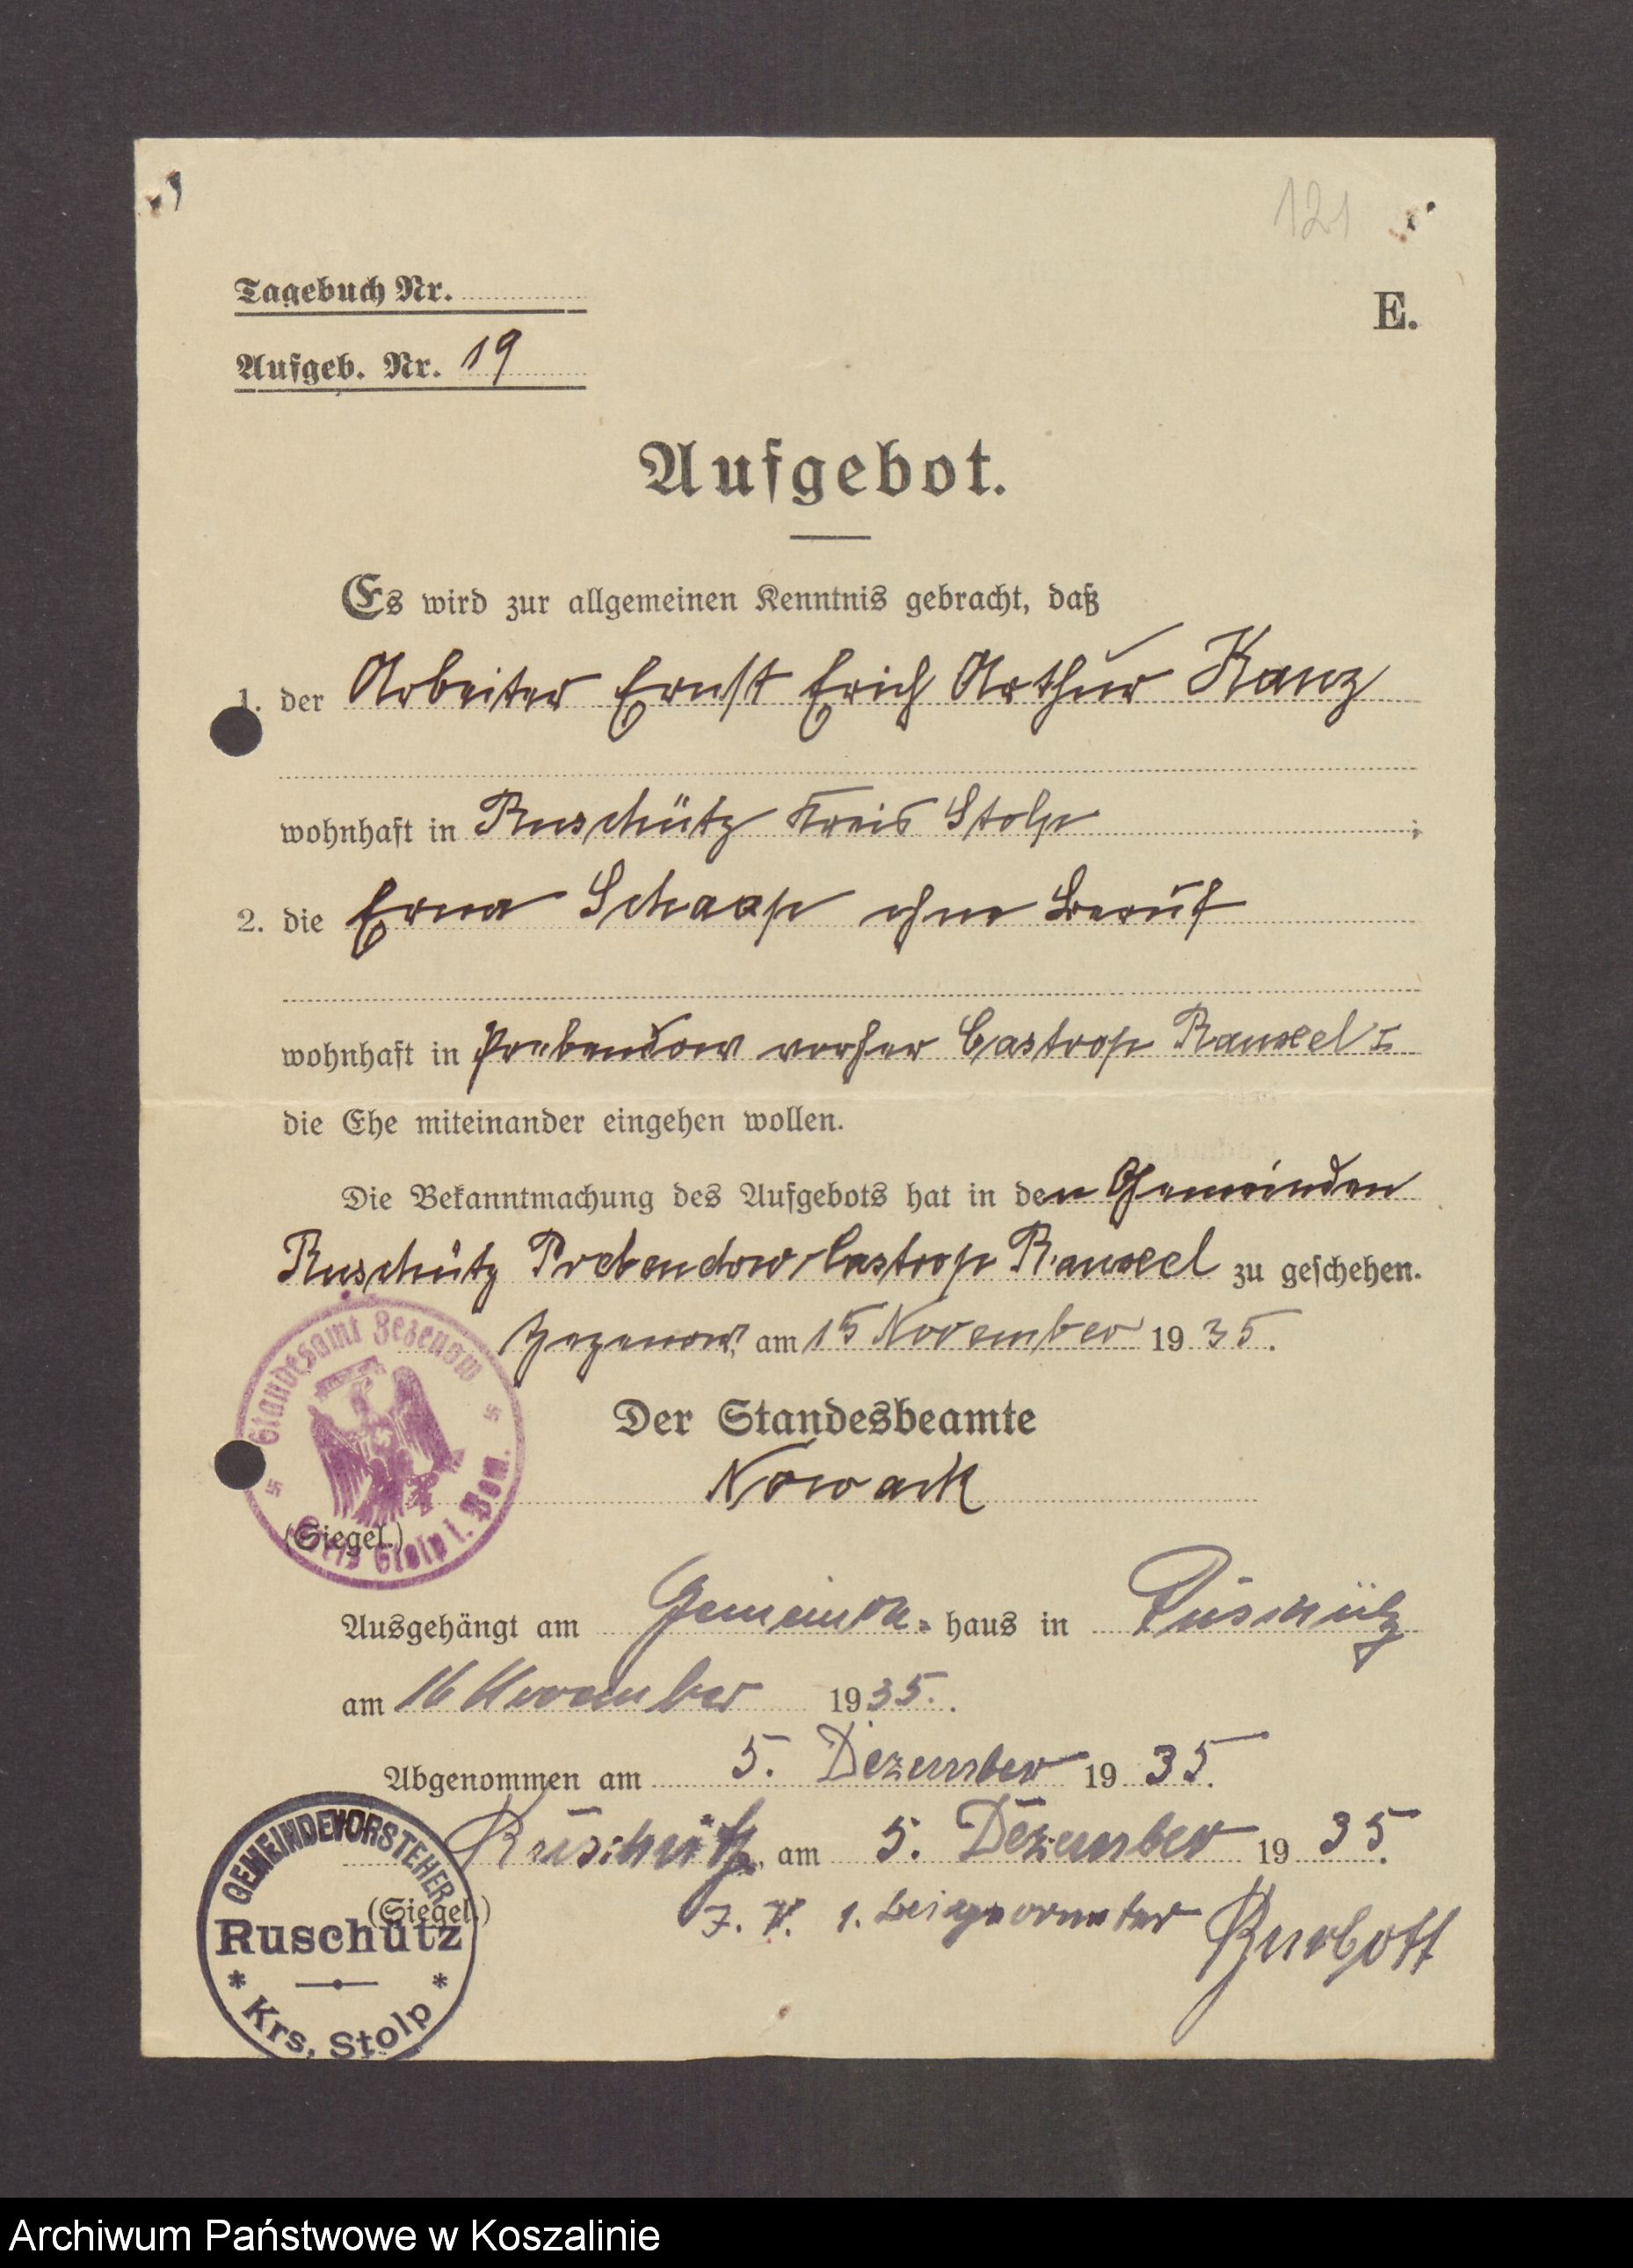 121
Tagebuch Nr.
E.
Aufgeb. Nr. 19
Aufgebot.
Es wird zur allgemeinen Kenntnis gebracht, daß
1. der Arbeiter Ernst Erich Arthur Kanz
wohnhaft in Ruschütz Kreis Stolp ;
2. die Erna Schaap ohne Beruf
wohnhaft in Prebendow vorher Castrop Rauxel I
die Ehe miteinander eingehen wollen.
Die Bekanntmachung des Aufgebots hat in den Gemeinden
Ruschütz Prebendow Castrop Rauxel zu geschehen.
Zezenow, am 15 November 1935.
Standesamt Zezenow
Kreis Stolp i. Pom.
Der Standesbeamte
Nowack
(Siegel.)
Ausgehängt am Gemeinde-haus in Ruschütz
am 16 November 1935.
Abgenommen am 5. Dezember 1935.
Ruschütz, am 5. Dezember 1935.
(Siegel.)
J. V. 1. Beigeordneter
GEMEINDEVORSTEHER
Ruschütz
* Krs. Stolp *
Archiwum Państwowe w Koszalinie